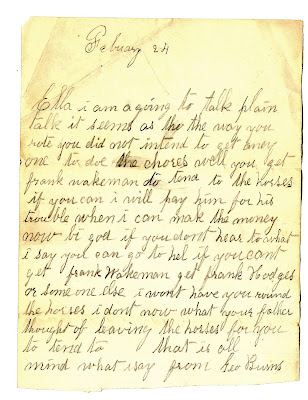 Febuary 24
Ella i am a going to talk plain
talk it seems as tho the way you
rote you did not intend to get eney
one to doe the chores well you get
frank wakeman to tend to the horses
if you can i will pay him for his
trouble when i can make the money
now bi god if you dont hear to what
i say you can go to hel if you cant
get frank Wakeman get frank Hodges
or some one else i wont have you round
the horses i dont now what your father
thought of leaving the horses for you
to tend to that is all
mind what i say from Geo Burns